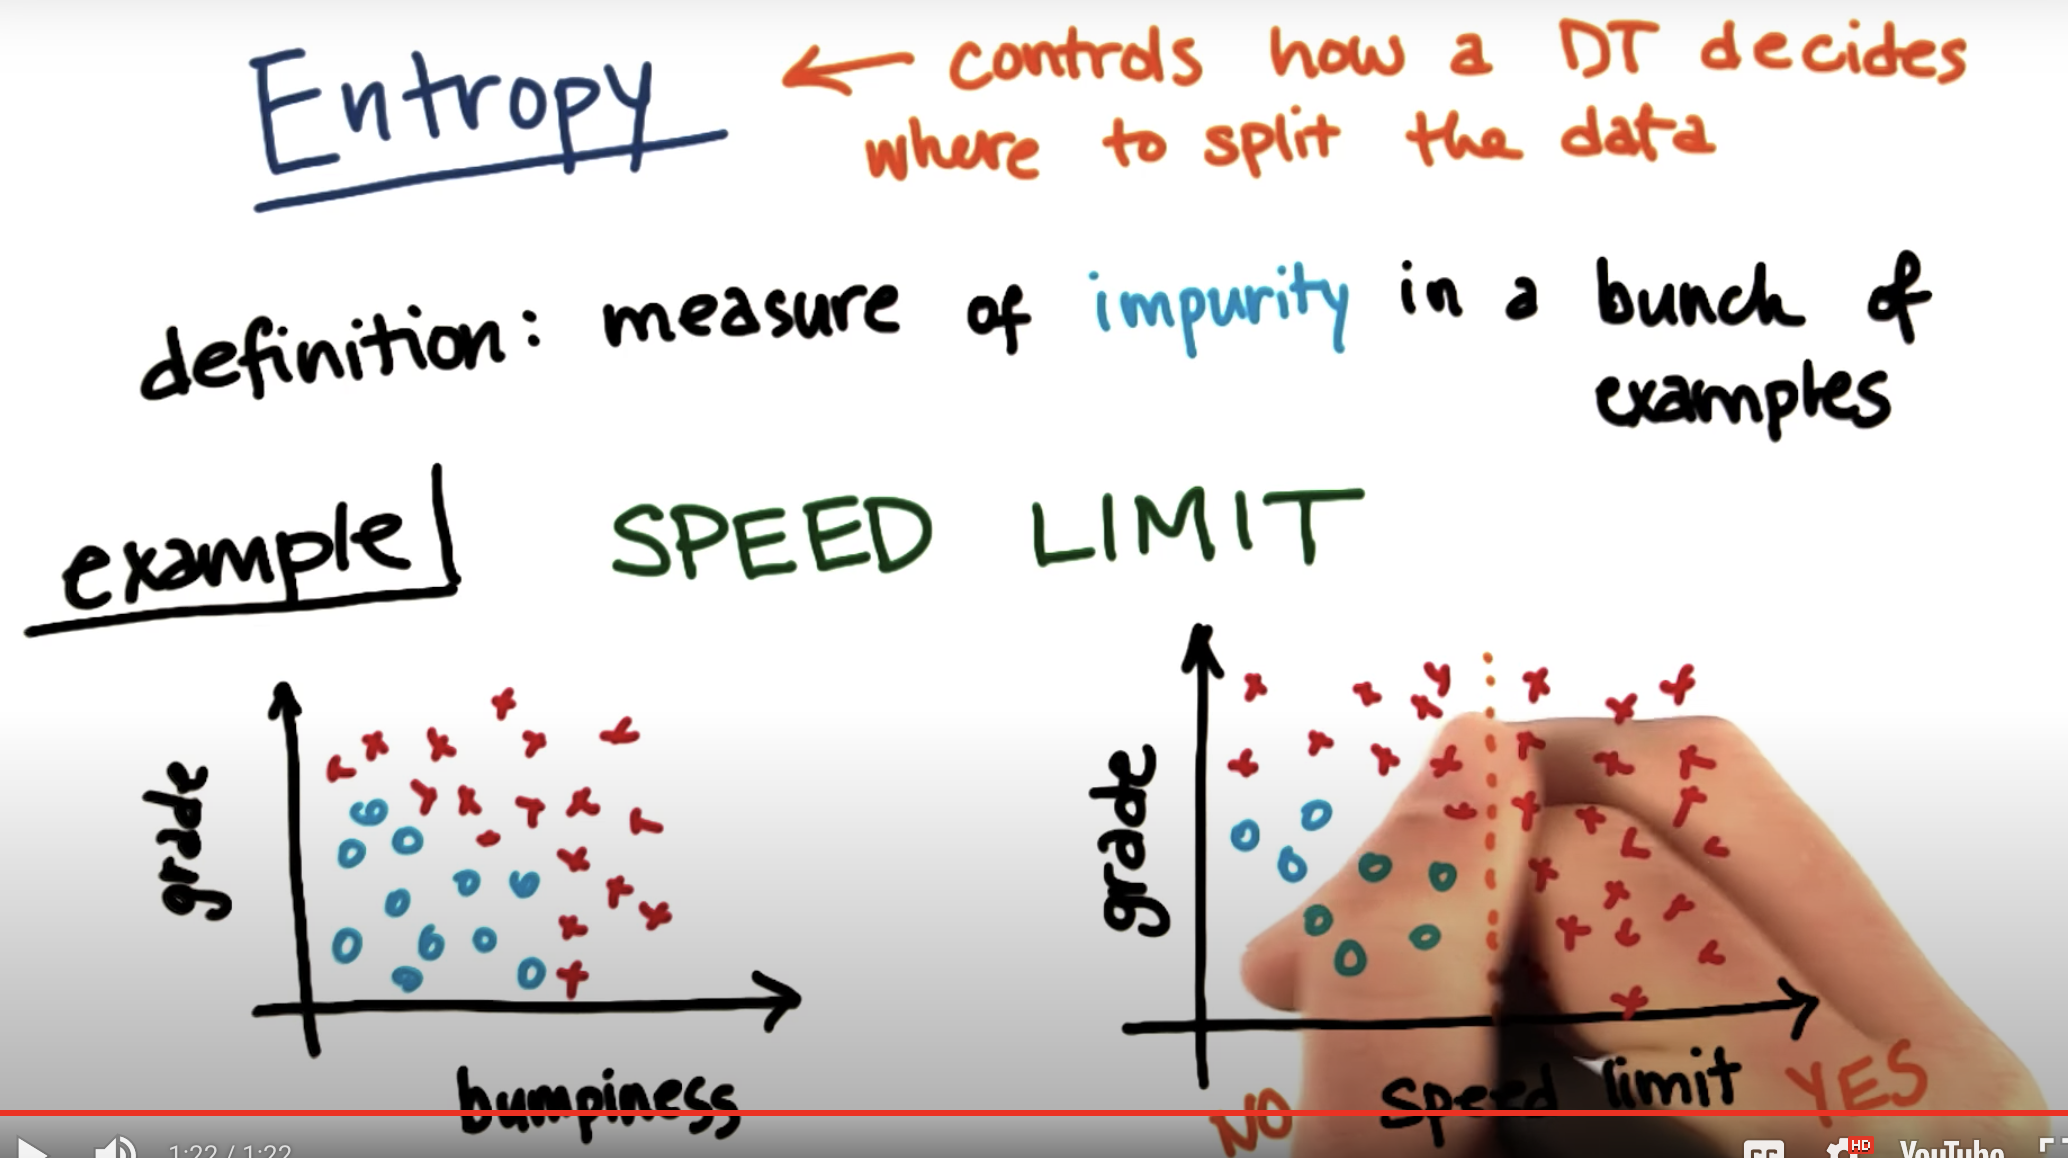 Entropy ← controls how a DT decides
where to split the data
definition: measure of impurity in a bunch of
examples
example SPEED LIMIT
grade
bumpiness
grade
NO speed limit YES
1:22 / 1:22
CC HD YouTube